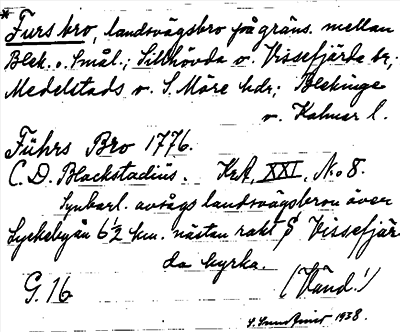 * Furs bro, landsvägsbro på gräns. mellan
Blek. o. Smål.; Sillhövda o. Vissefjärda sr;
Medelstads o. S. Möre hdr; Blekinge
o. Kalmar l.
Führs Bro 1776.
C. D. Blackstadius. Krt. XXI, N:o 8.
Synbarl. avsågs landsvägsbron över
Lyckebyån 6 1/2 km. nästan rakt S Vissefjär
da kyrka.
G. 16 (Vänd!)
1938.